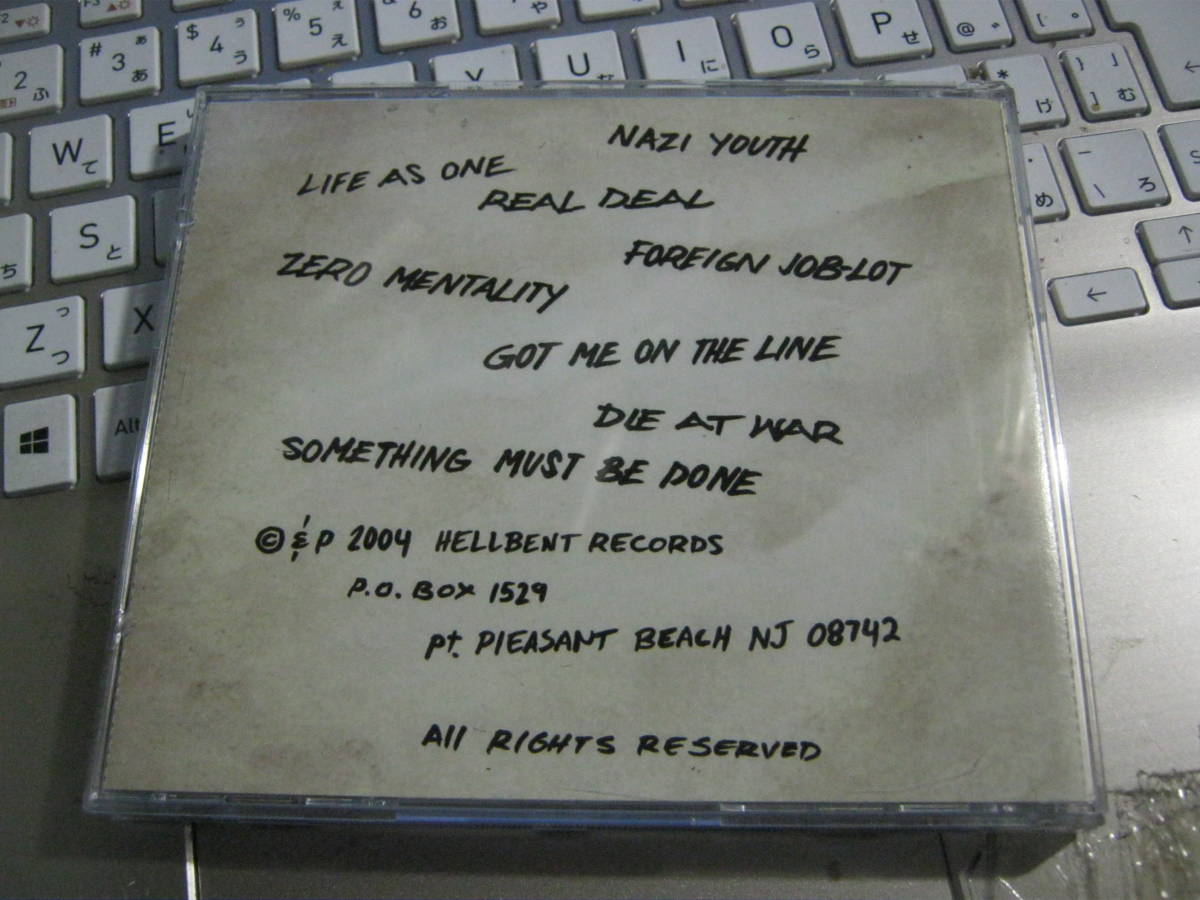 NAZI YOUTH
LIFE AS ONE
REAL DEAL
FOREIGN JOB-LOT
ZERO MENTALITY
GOT ME ON THE LINE
DIE AT WAR
SOMETHING MUST BE DONE
© & P 2004 HELLBENT RECORDS
P.O. BOX 1529
Pt. PlEASANT BEACH NJ 08742
All RIGHTS RESERVED
# 3 あ
$ 4 う
% 5 え
& 6 お
2 ふ
W て
E
U
I に
O ら
P せ
@
* け
} ] む
S と
ち
Z つ っ
X
Alt
め
_ \ ろ
←
↑